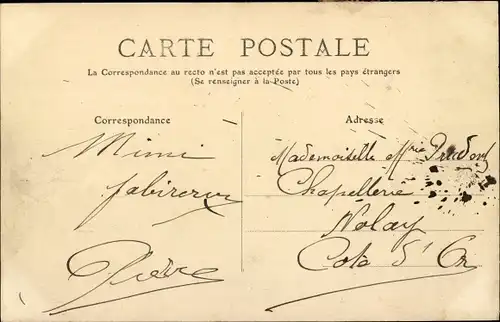 CARTE POSTALE
La Correspondance au recto n'est pas acceptée par tous les pays étrangers
(Se renseigner à la Poste)
Correspondance
Adresse
Mimi
Pierre
Mademoiselle Mrie Prudon
Chapellerie
Nolay
Cote d'Or